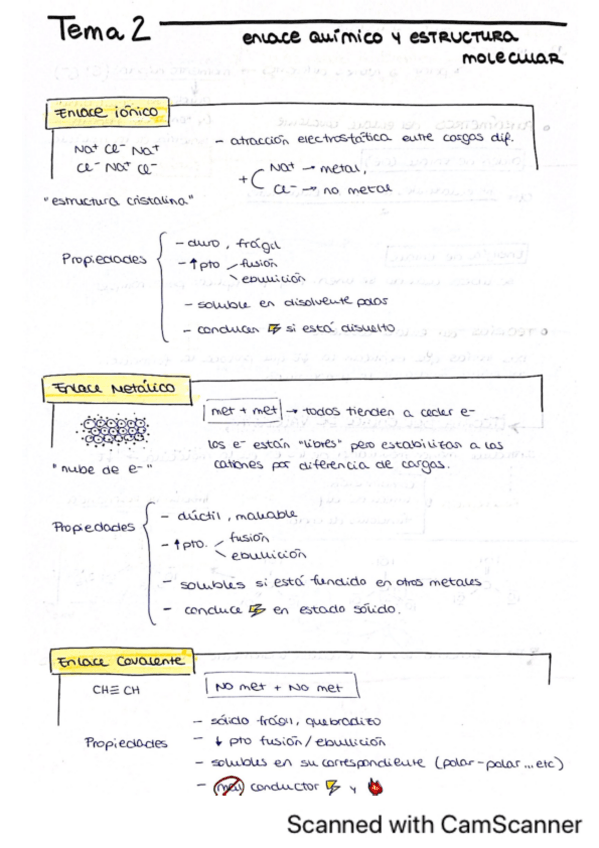 Tema 2
enlace químico y ESTRUCTURA
molecular
Enlace iónico
Na+ Cl- Na+
Cl- Na+ Cl-
"estructura cristalina"
- atracción electrostática entre cargas dif.
+ ( Na+ → metal,
Cl- → no metal
Propiedades
- duro, frágil
- ↑ pto fusión
ebullición
- soluble en disolvente polos
- conducen ⚡ si está disuelto
Enlace Metálico
met + met → todos tienden a ceder e-
"nube de e-"
los e- están "libres" pero estabilizan a los
cationes por diferencia de cargas.
Propiedades
- dúctil, maleable
- ↑ pto. fusión
ebullición
- solubles si está fundido en otros metales
- conduce ⚡ en estado sólido.
Enlace Covalente
CH≡CH
No met + No met
Propiedades
- sólido frágil, quebradizo
- ↓ pto fusión/ebullición
- solubles en su correspondiente (polar-polar...etc)
- (mal) conductor ⚡ y
Scanned with CamScanner